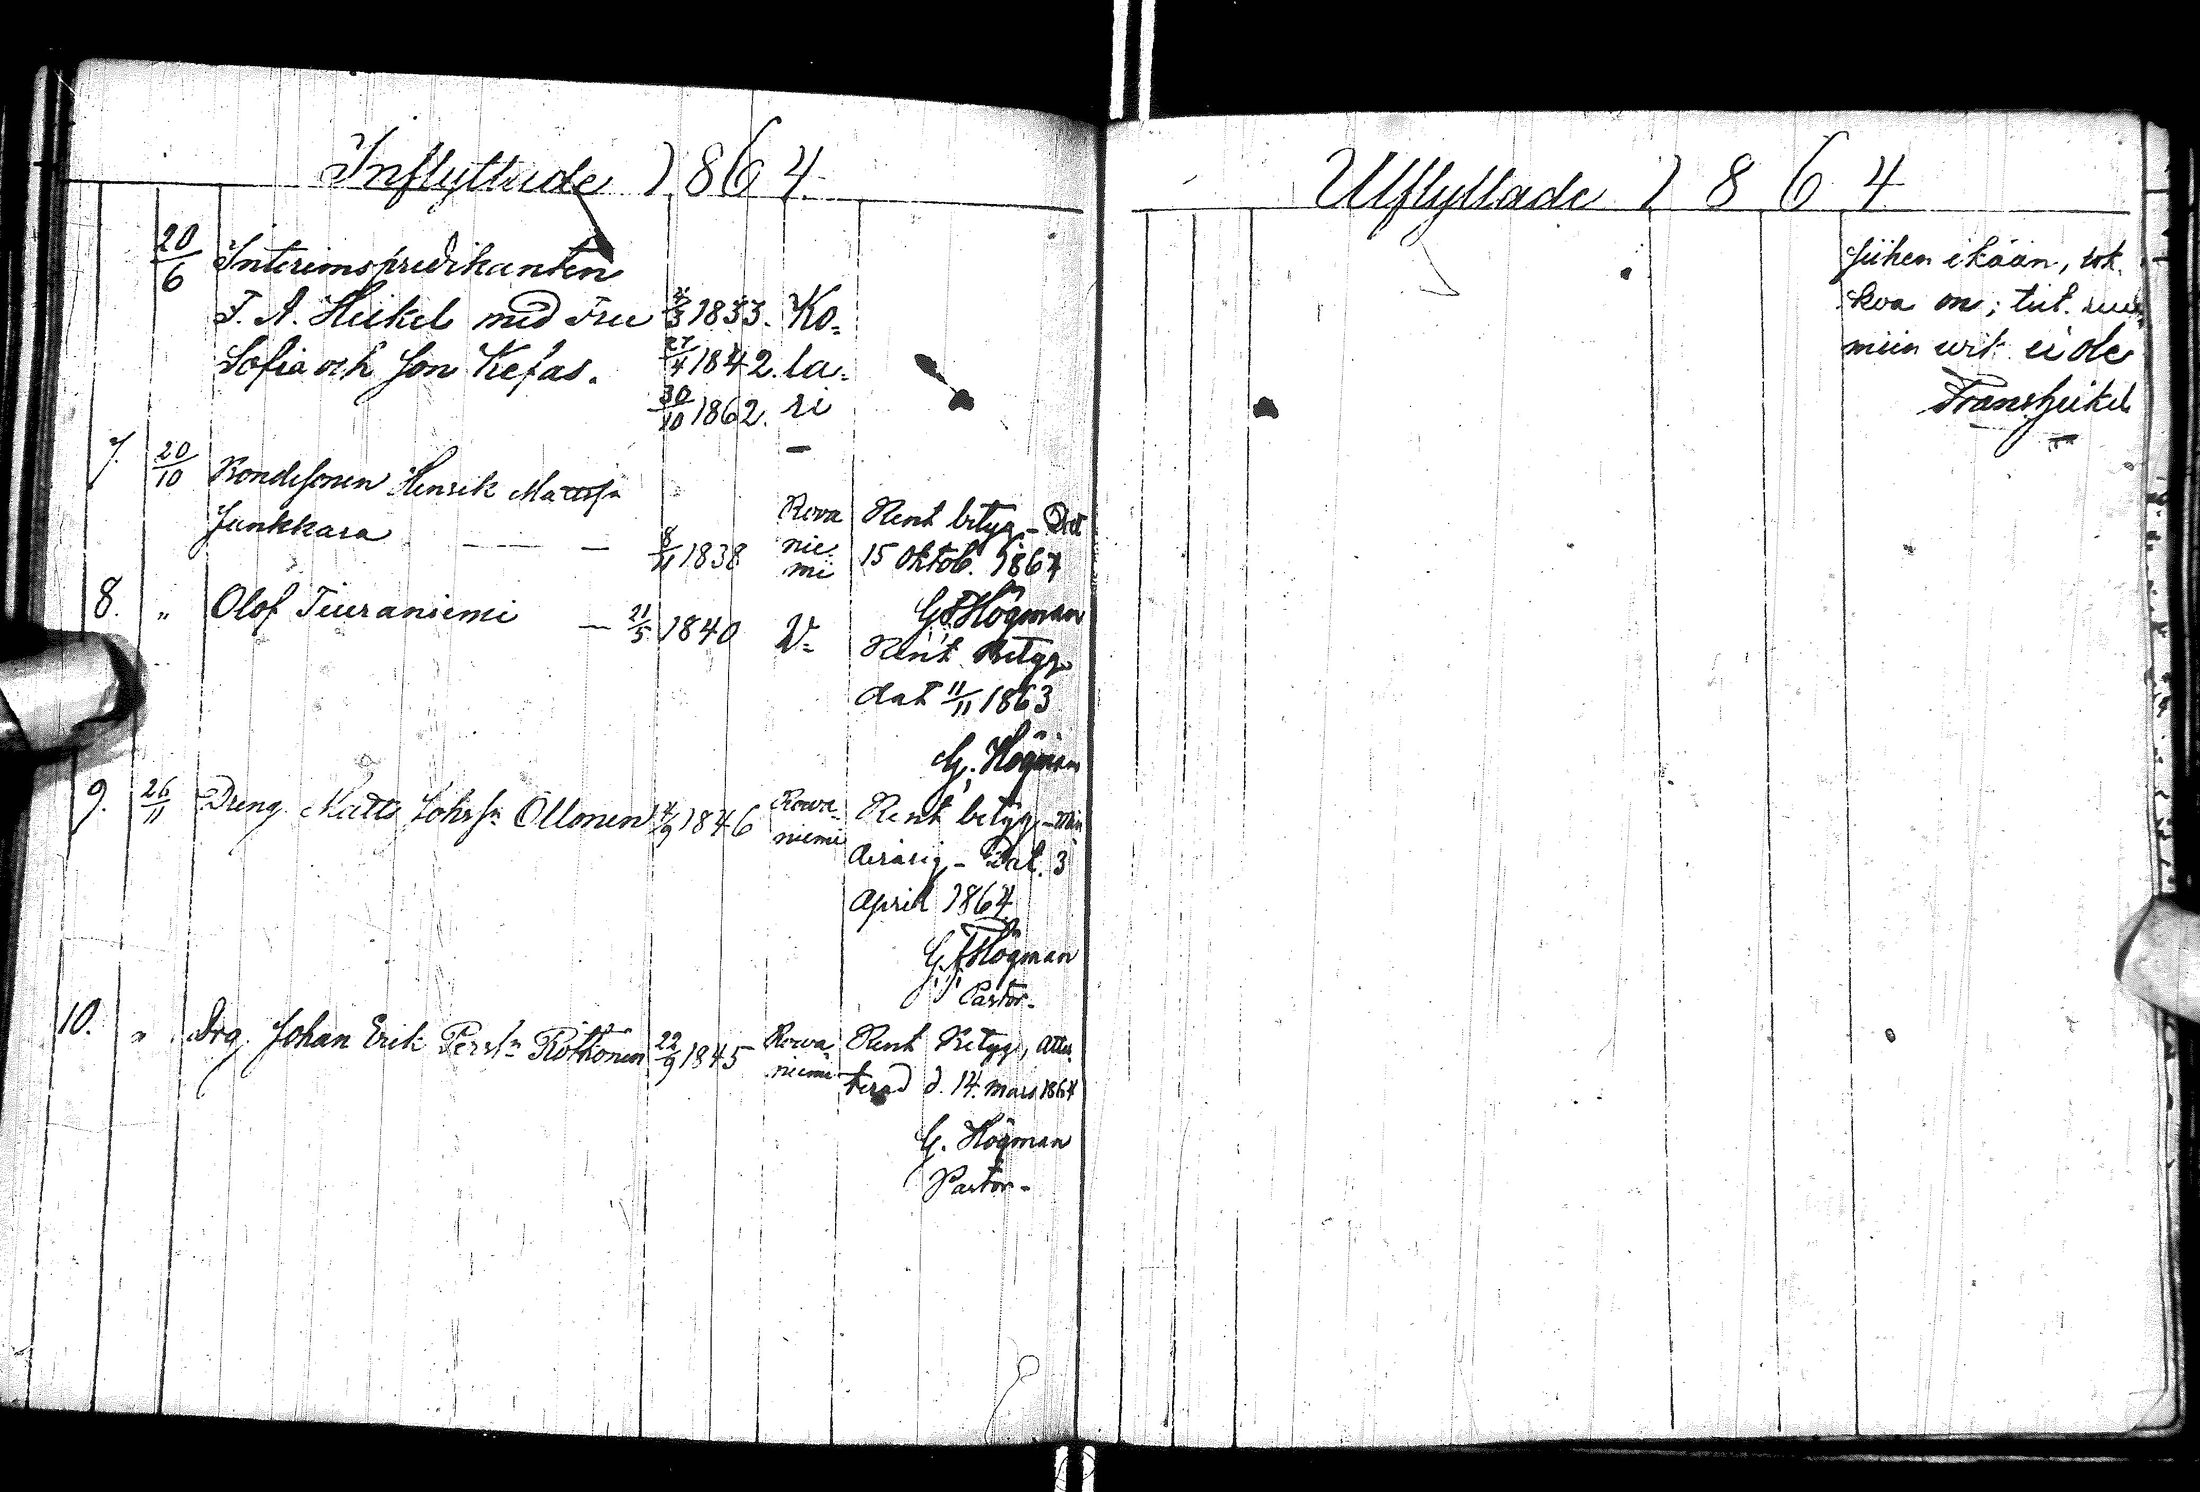 Inflyttade 1864.
20/6 Interimspredikanten
F. A. Heikel med Fru 4/3 1833. Ko-
Sofia och Son Kefas. 27/4 1842. la-
30/10 1862. ri
7. 20/10 Bondesonen Henrik Mattss
Junkkara — — 8/11 1838
Rova Rent betyg - Dat
nie- 15 Oktob. 1864
mi
G F Högman
8. " Olof Tiuraniemi — 21/5 1840 V-
Rent Betyg
dat 11/11 1863
G. Högman
9. 26/11 Dreng Matts Johss Ollonen 4/9 1846 Rowa- Rent betyg - Min
niemi derårig - Dat. 3
April 1864
G. F. Högman
Pastor -
10. " Drg. Johan Erik Perss Rothonen 22/9 1845 Rowa- Rent Betyg, Attes
niemi terad d. 14. mars 1864
G. Högman
Pastor -
Utflyttade 1864
siihen ikään,
kva on; tut.
miin ei ole
Frans Heikel